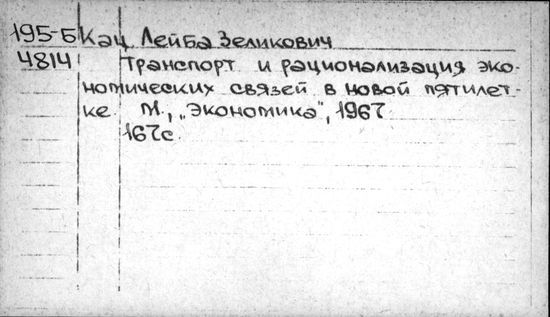 195-Б Кац Лейба Зеликович
4814 Транспорт и рационализация эко-
номических связей в новой пятилет-
ке. М., „Экономика", 1967.
167с.